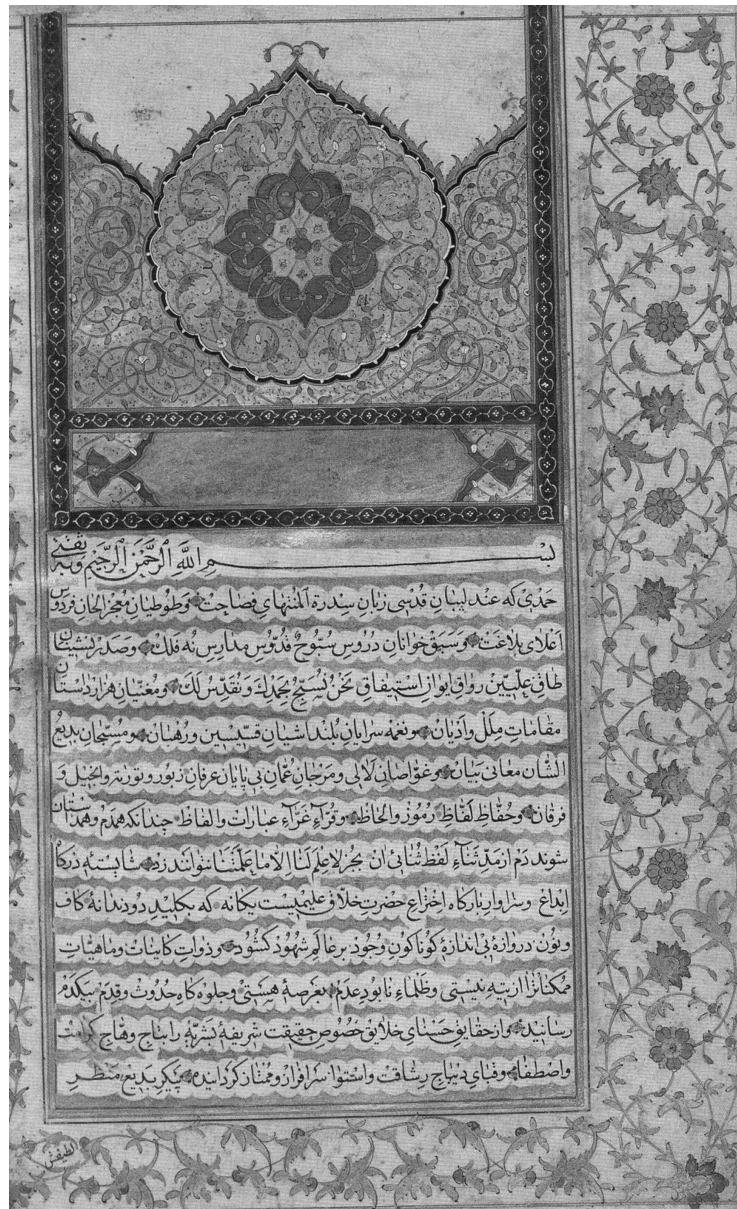 بسم الله الرحمن الرحيم وبه ثقتي
حمدی که عندلیبان قدسی زبان سدرة المنتهای فصاحت و طوطیان معجز الحان فردوس
اعلای بلاغت و سبق خوانان دروس سبوح قدوس مدارس نه فلک و صدر نشینان
طاق علیین رواق ایوان نحن نسبح بحمدك ونقدس لك و مغنیان هزار دستان
مقامات ملل و ادیان و نغمه سرایان بلند آشیان قسیسین و رهبان و مسبحان بدیع
الشان معانی بیان و غواصان لآلی و مرجان عمان بی پایان عرفان زبور و توریة و انجیل و
فرقان و حفاظ لفاظ رموز و الحاظ و قراء غراء عبارات و الفاظ چندانکه همدم و همداستان
شوند دم از مد ثناء لفظ ثنائی آن بجز لا علم لنا الا ما علمتنا نتوانند زد شایسته درگاه
ابداع و سزاوار بارگاه اختراع حضرت خلاق علیمیست یگانه که بکلید دو دندانهٔ کاف
و نون دروازهٔ بی اندازهٔ گوناگون وجود بر عالم شهود گشود و ذوات کاینات و ماهیات
ممکناترا از تیه نیستی و ظلماء نابود عدم بعرصهٔ هستی و جلوه گاه حدوث و قدم بیکدم
رسانید و از حقایق حسنای خلایق خصوص حقیقت شریفهٔ بشریه را بتاج وهاج کرامت
و اصطفا و قبای دیباج رشاقت و استوا سرافراز و ممتاز گردانیده پیکر بدیع منظر
لطیفش